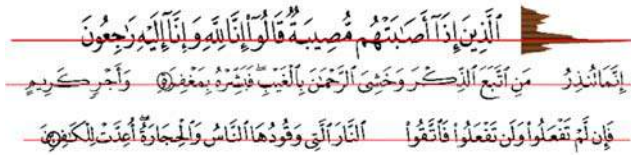 الَّذِينَ إِذَا أَصَابَتْهُم مُّصِيبَةٌ قَالُوا إِنَّا لِلَّهِ وَإِنَّا إِلَيْهِ رَاجِعُونَ
إِنَّمَا تُنذِرُ مَنِ اتَّبَعَ الذِّكْرَ وَخَشِيَ الرَّحْمَٰنَ بِالْغَيْبِ فَبَشِّرْهُ بِمَغْفِ وَأَجْرٍ كَرِيمٍ
فَإِن لَّمْ تَفْعَلُوا وَلَن تَفْعَلُوا فَاتَّقُوا النَّارَ الَّتِي وَقُودُهَا النَّاسُ وَالْحِجَارَةُ أُعِدَّتْ لِلْكَافِرِينَ